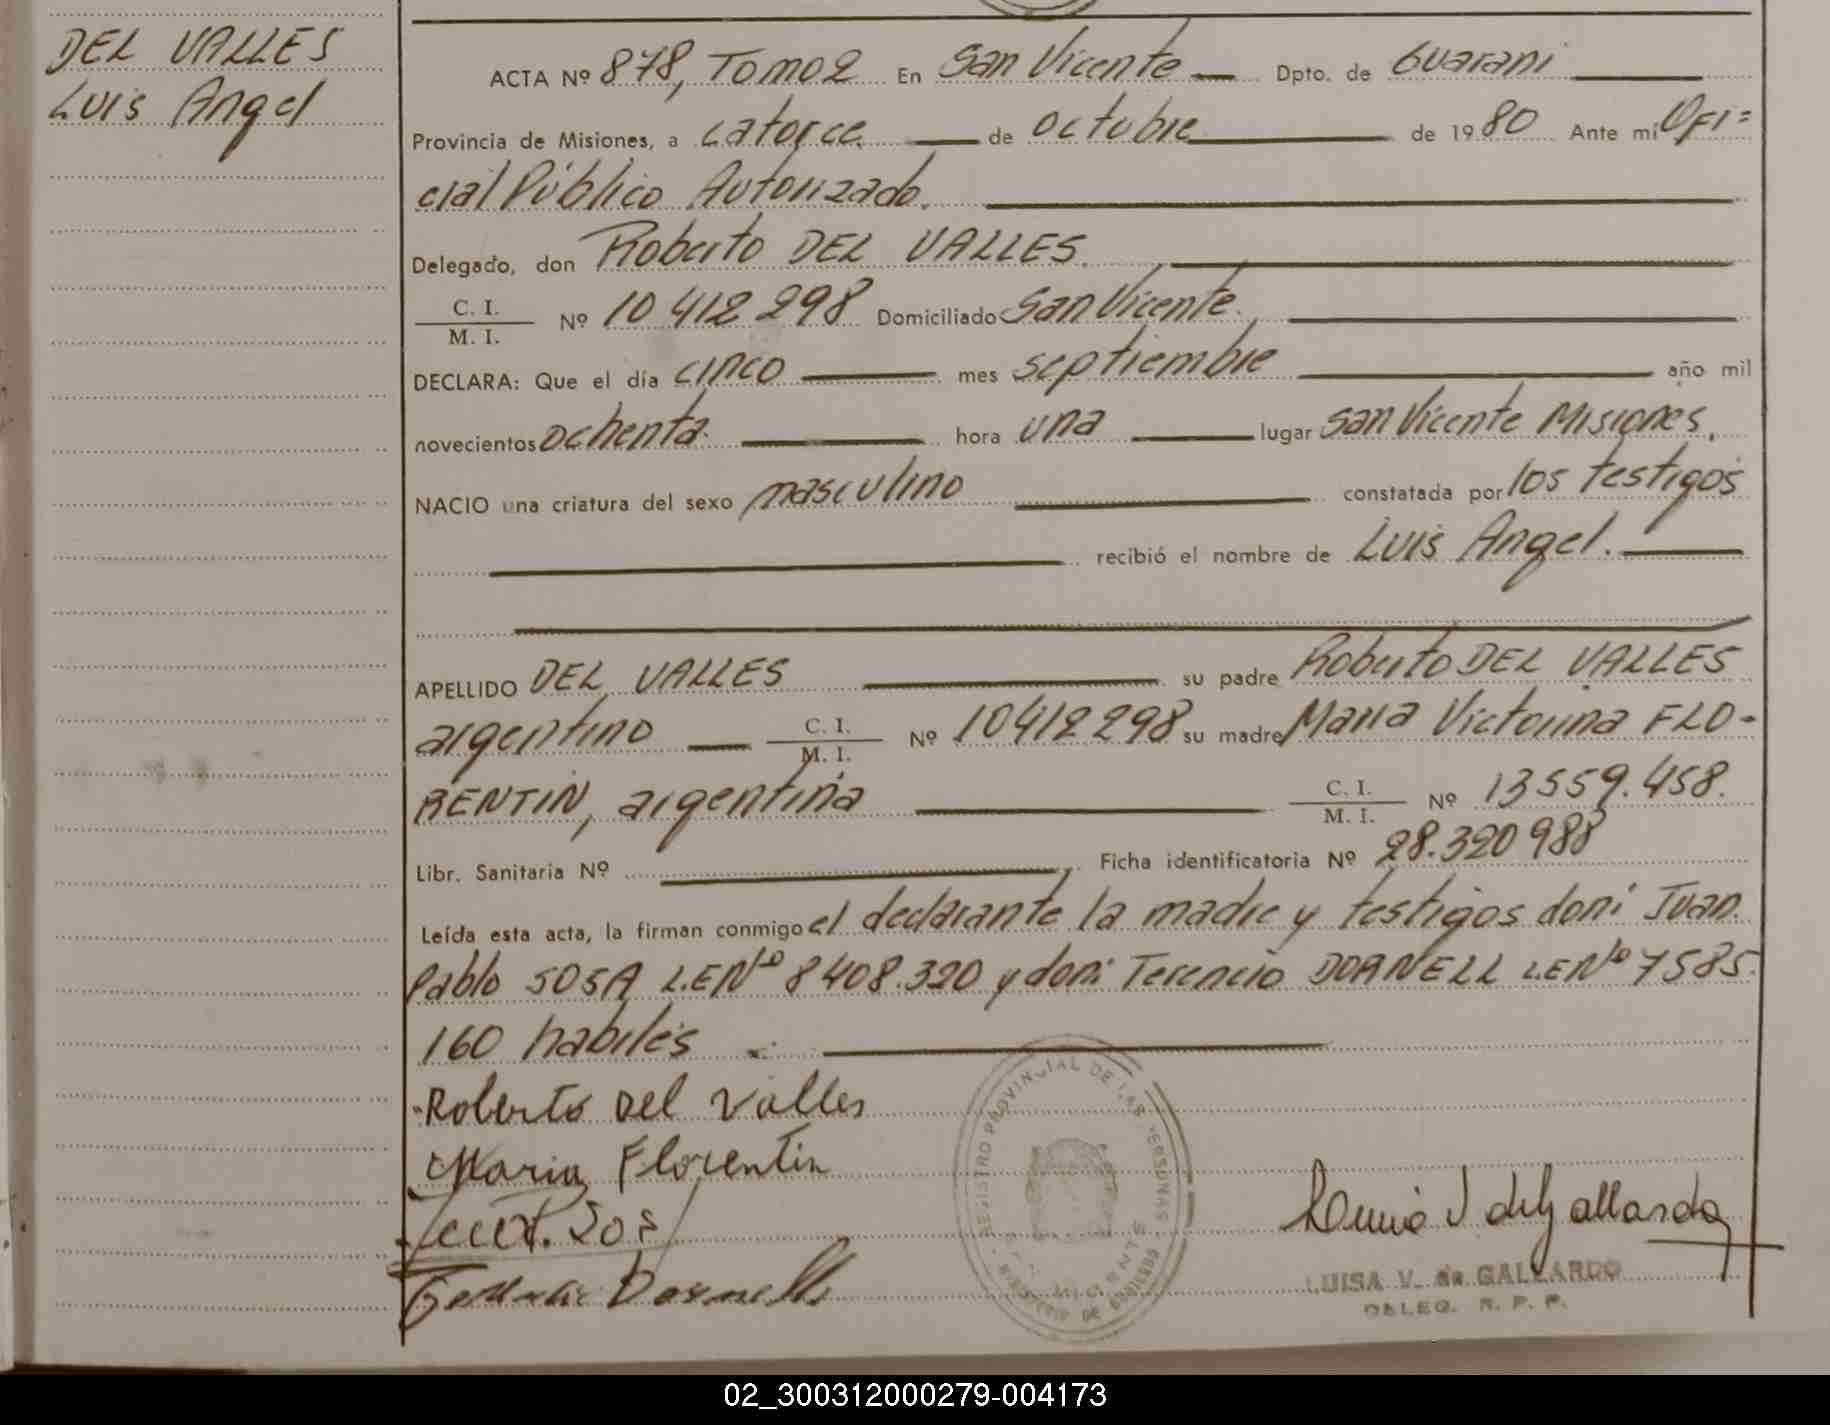 DEL VALLES
Luis Angel
ACTA Nº 878, Tomo 2 En San Vicente Dpto. de Guarani
Provincia de Misiones, a catorce de octubre de 1980 Ante mí Ofi=
cial Público Autorizado.
Delegado, don Roberto DEL VALLES.
C. I.
M. I. Nº 10 412 298 Domiciliado San Vicente.
DECLARA: Que el día cinco mes septiembre año mil
novecientos ochenta. hora una lugar San Vicente Misiones.
NACIO una criatura del sexo masculino constatada por los testigos
recibió el nombre de Luis Angel.
APELLIDO DEL VALLES su padre Roberto DEL VALLES
argentino C. I.
M. I. Nº 10412298 su madre Maria Victorina FLO-
RENTIN, argentina C. I.
M. I. Nº 13559.458.
Libr. Sanitaria Nº Ficha identificatoria Nº 28.320 988
Leída esta acta, la firman conmigo el declarante la madre y testigos don: Juan
Pablo SOSA L.E Nº 8408.320 y don: Terencio DORNELL L.E Nº 7585.
160 habiles
Roberto Del Valles
Maria Florentin
REGISTRO PROVINCIAL DE LAS PERSONAS
MINISTERIO DE GOBIERNO
LUISA V. de GALLARDO
DELEG. R. P. P.
02_300312000279-004173